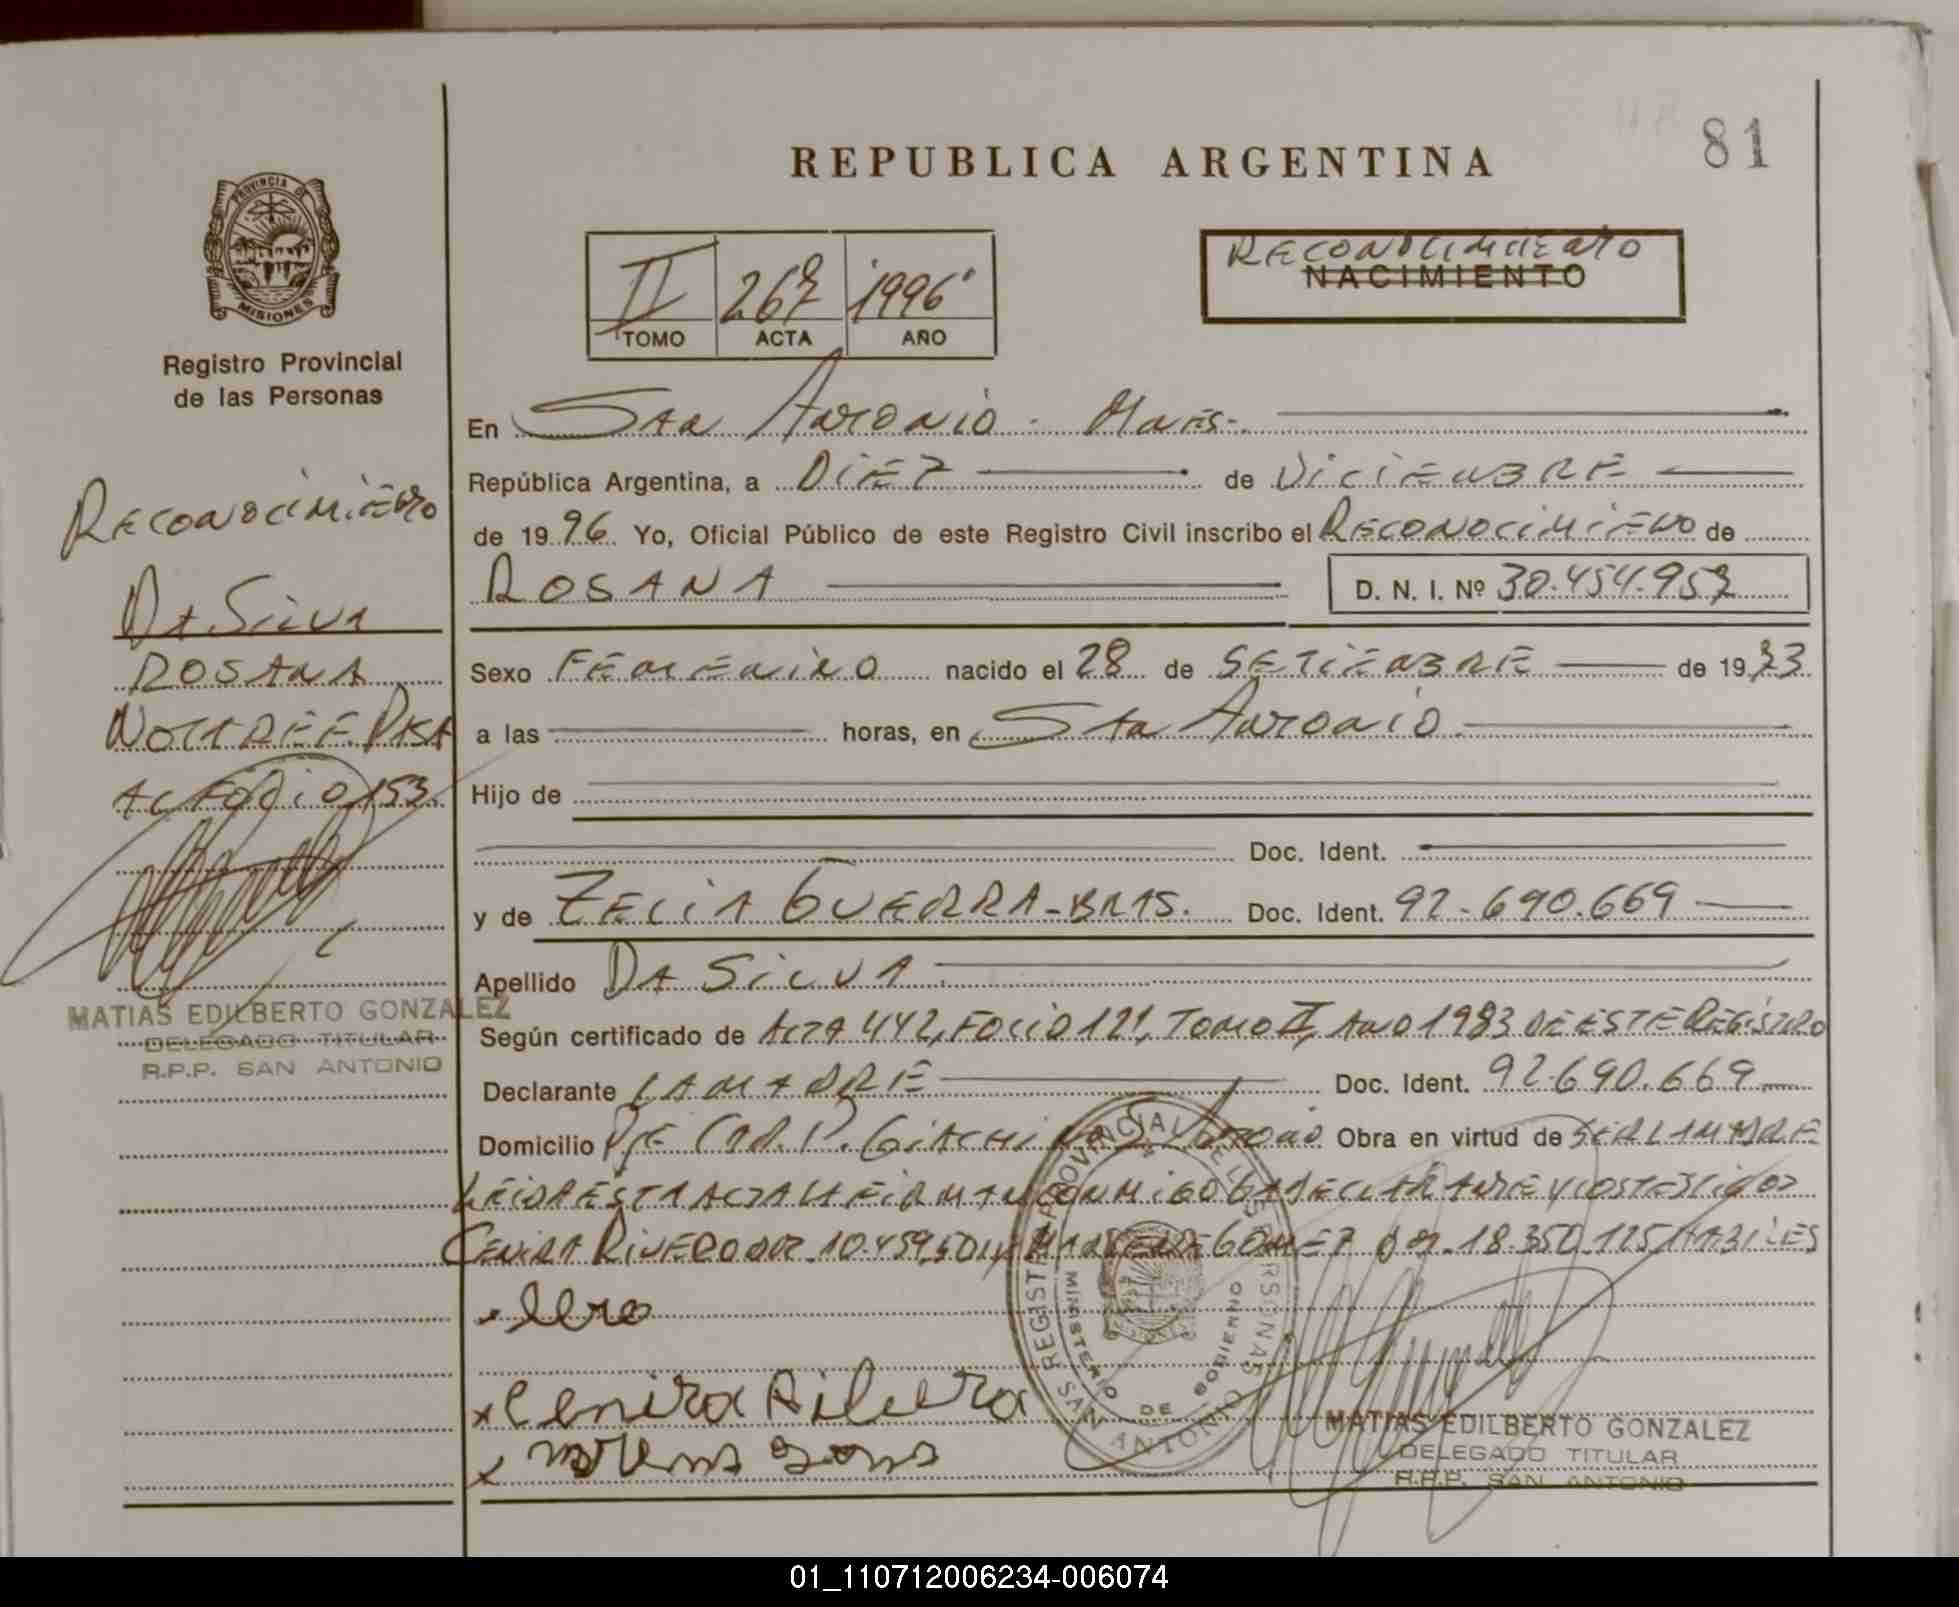 REPUBLICA ARGENTINA
81
PROVINCIA DE
MISIONES
Registro Provincial
de las Personas
II 267 1996
TOMO ACTA AÑO
RECONOCIMIENTO
NACIMIENTO
En San Antonio - Mnes.
República Argentina, a DIEZ de DICIEMBRE
de 1996 Yo, Oficial Público de este Registro Civil inscribo el RECONOCIMIENTO de
ROSANA D. N. I. Nº 30.454.957
Sexo FEMENINO nacido el 28 de SETIEMBRE de 1973
a las horas, en San Antonio
Hijo de
Doc. Ident.
y de ZELIA GUERRA-BRAS. Doc. Ident. 92.690.669
Apellido DA SILVA
Según certificado de ACTA 442, FOLIO 121, TOMO II, AÑO 1983 DE ESTE REGISTRO
Declarante LA MADRE Doc. Ident. 92.690.669
Domicilio Obra en virtud de SER LA MADRE
LEIDA ESTA ACTA LA FIRMAN CONMIGO LA DECLARANTE Y LOS TESTIGOS
CENIRA RIVERO DE GOMEZ 18.350.125 HABILES
Cenira Ribera
RECONOCIMIENTO
DA SILVA
ROSANA
NOTA DE E. PASA
AL FOLIO 153.
MATIAS EDILBERTO GONZALEZ
DELEGADO TITULAR
R.P.P. SAN ANTONIO
REGISTRO PROVINCIAL DE LAS PERSONAS
MINISTERIO DE GOBIERNO
SAN ANTONIO
MATIAS EDILBERTO GONZALEZ
DELEGADO TITULAR
R.P.P. SAN ANTONIO
01_110712006234-006074